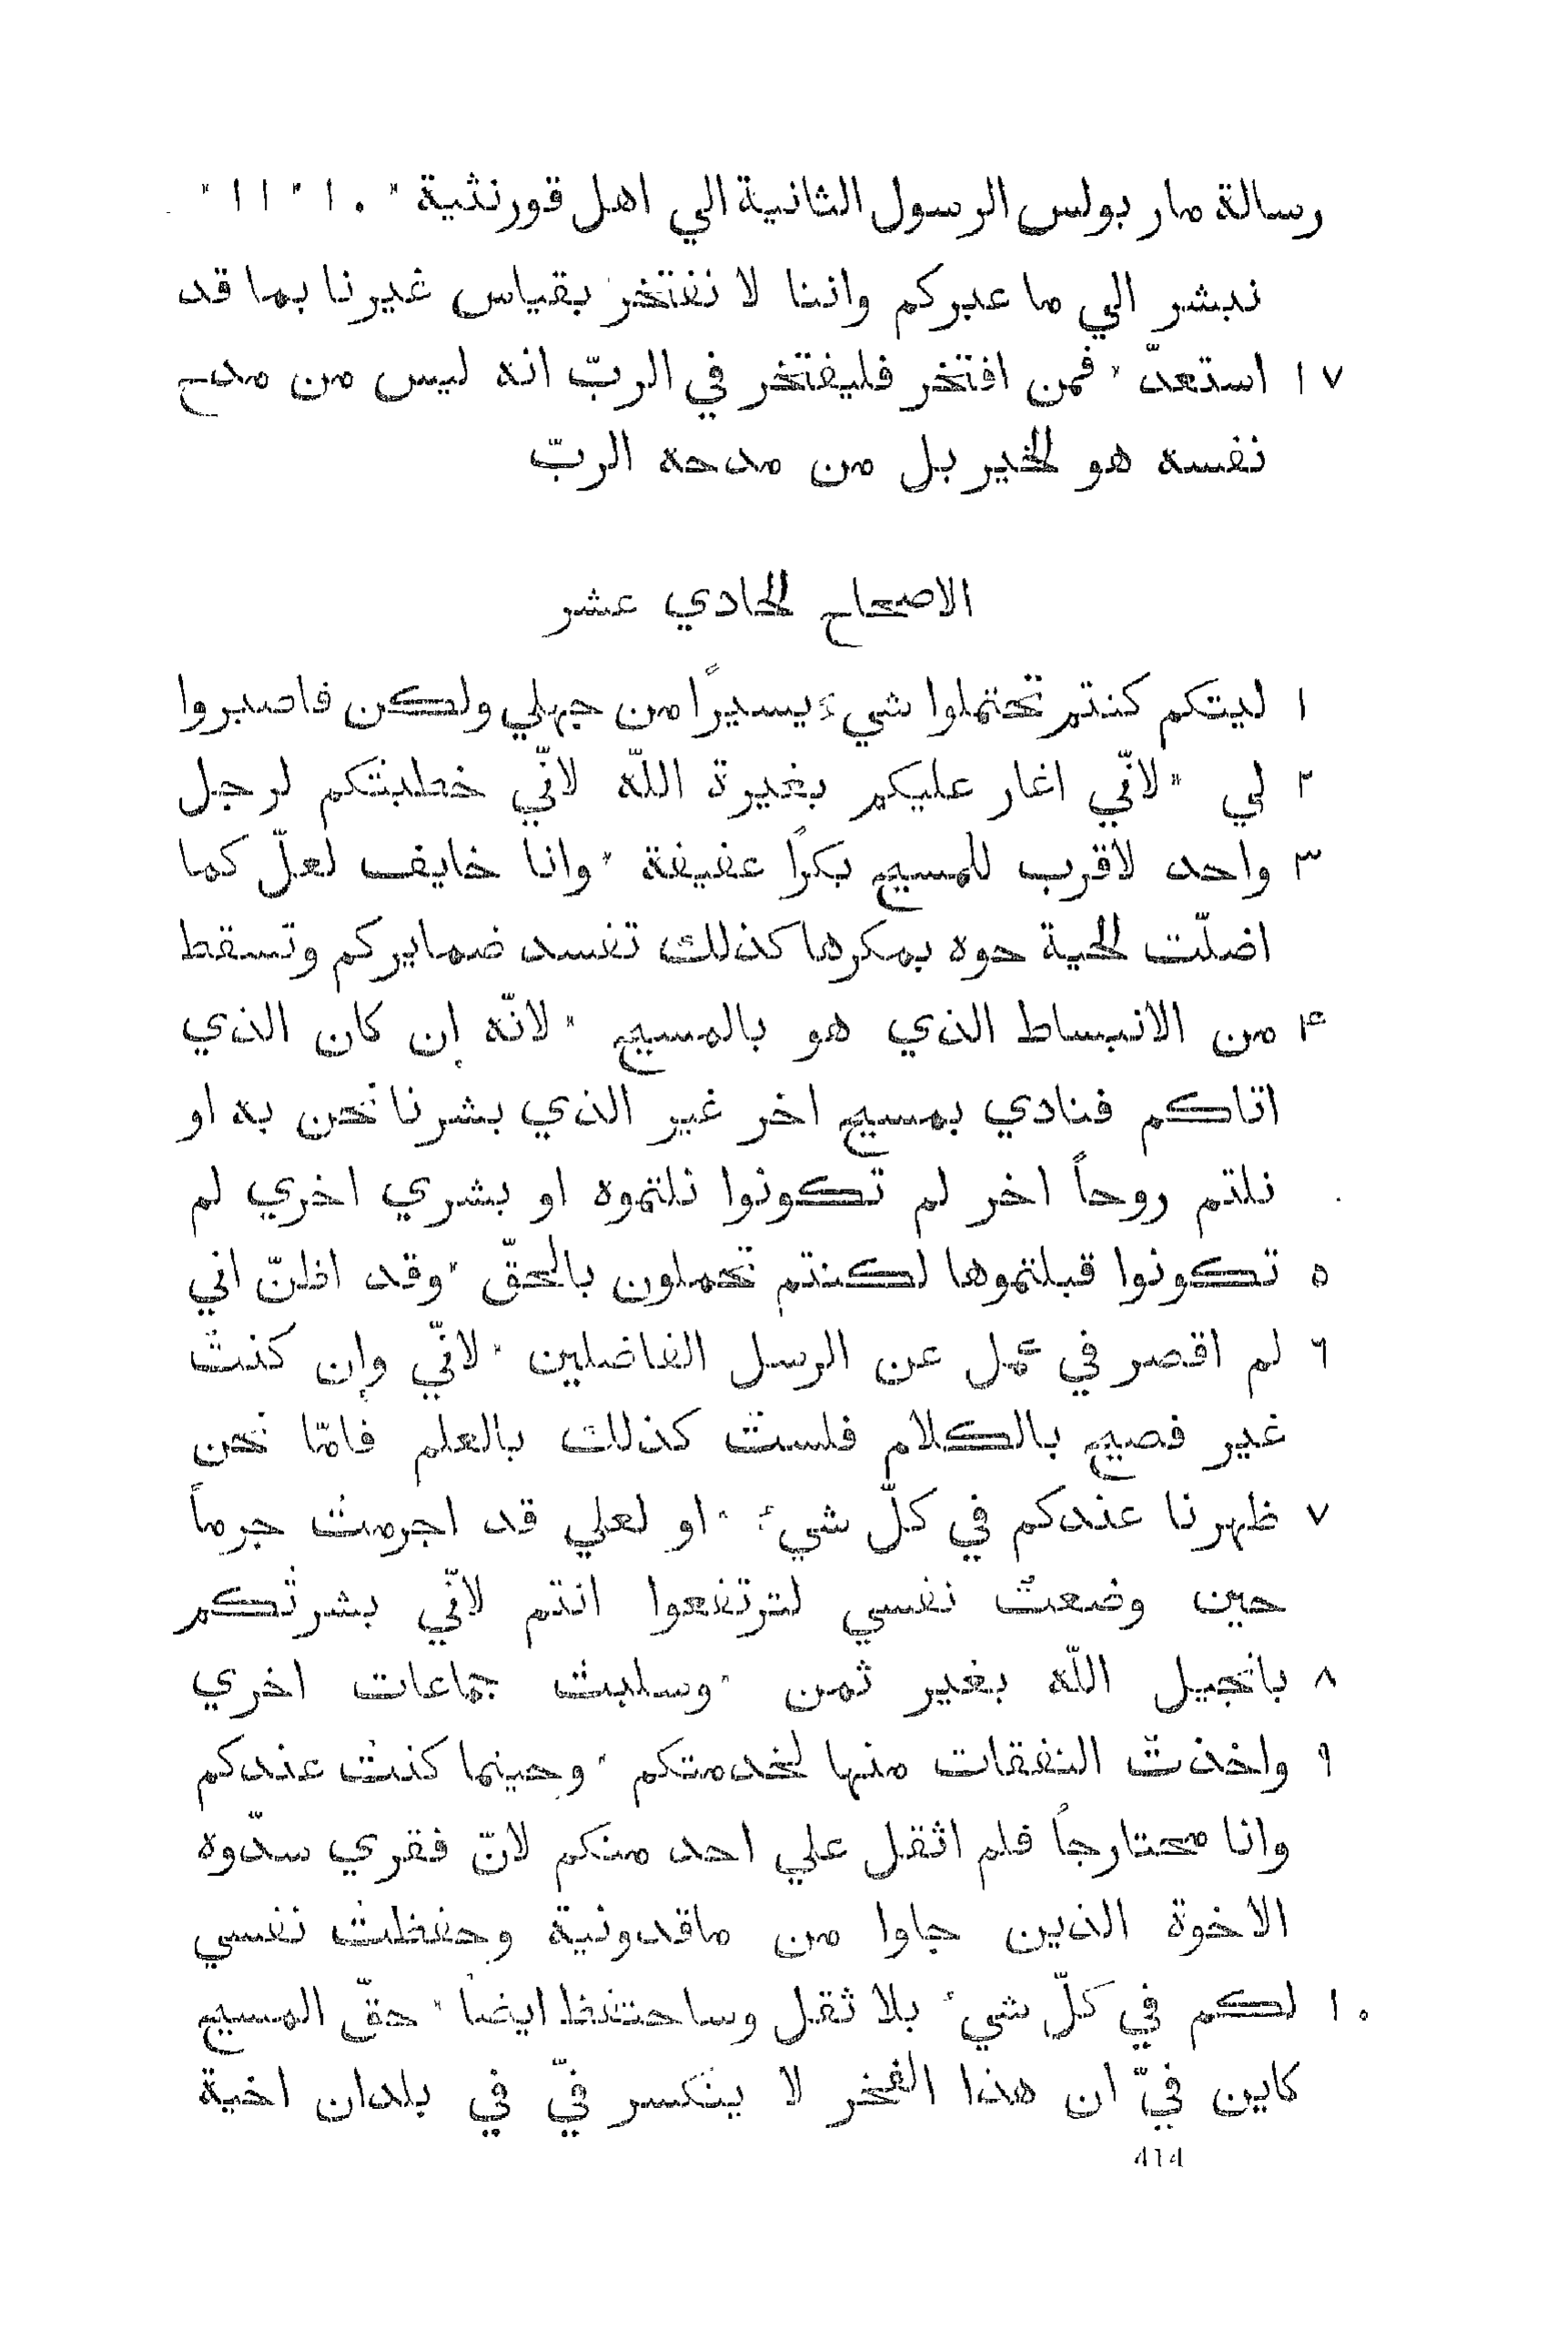 رسالة مار بولس الرسول الثانية الي اهل قورنثية * ١٠ * ١١ *
نبشر الي ما عبركم واننا لا نفتخر بقياس غيرنا بما قد
١٧ استعدّ * فمن افتخر فليفتخر في الربّ انه ليس من مدح
نفسه هو الخير بل من مدحه الربّ
الاصحاح الحادي عشر
١ ليتكم كنتم تحتملوا شيء يسيرًا من جهلي ولكن فاصبروا
٢ لي * لانّي اغار عليكم بغيرة اللّه لانّي خطبتكم لرجل
٣ واحد لاقرب للمسيح بكرًا عفيفة * وانا خايف لعلّ كما
اضلّت الحية حوه بمكرها كذلك تفسد ضمايركم وتسقط
۴ من الانبساط الذي هو بالمسيح * لانّه إن كان الذي
اتاكم فنادي بمسيح اخر غير الذي بشرنا نحن به او
نلتم روحاً اخر لم تكونوا نلتموه او بشري اخري لم
٥ تكونوا قبلتموها لكنتم تحملون بالحقّ * وقد اظنّ اني
٦ لم اقصر في عمل عن الرسل الفاضلين * لانّي وإن كنت
غير فصيح بالكلام فلست كذلك بالعلم فامّا نحن
٧ ظهرنا عندكم في كلّ شيء * او لعلي قد اجرمت جرماً
حين وضعت نفسي لترتفعوا انتم لانّي بشرتكم
٨ بانجيل اللّه بغير ثمن * وسلبت جماعات اخري
٩ واخذت النفقات منها لخدمتكم * وحينما كنت عندكم
وانا محتارجاً فلم اثقل علي احد منكم لانّ فقري سدّوه
الاخوة الذين جاوا من ماقدونية وحفظت نفسي
١٠ لكم في كلّ شيء بلا ثقل وساحتفظ ايضا * حقّ المسيح
كاين فيّ ان هذا الفخر لا ينكسر فيّ في بلدان اخية
414